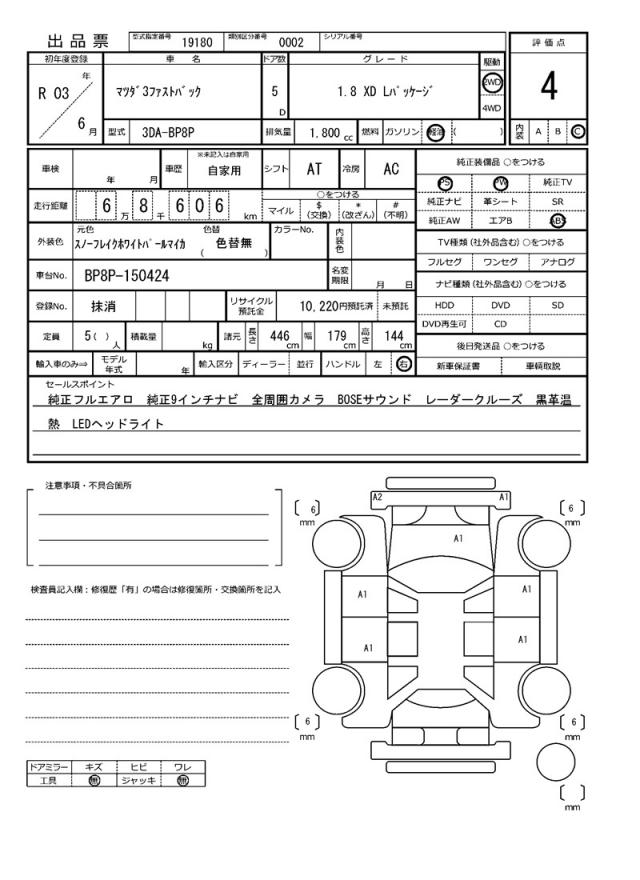 出品票 型式指定番号 19180 類別区分番号 0002 シリアル番号
評価点
初年度登録 車名 ドア数 グレード 駆動
R 03 年 6 月
マツダ3ファストバック 5 D 1.8 XD Lパッケージ 2WD 4WD
4
型式 3DA-BP8P 排気量 1,800 cc 燃料 ガソリン 軽油 ( )
内装 A B C
車検 年 月 車歴 ※未記入は自家用 自家用 シフト AT 冷房 AC
走行距離 6 万 8 千 6 0 6 km
○をつける
マイル $(交換) *(改ざん) #(不明)
外装色 元色 スノーフレイクホワイトパールマイカ 色替 ( 色替無 ) カラーNo. 内装色
車台No. BP8P-150424 名変期限 月 日
登録No. 抹消 リサイクル預託金 10,220円預託済 未預託
定員 5( )人 積載量 kg 諸元 長さ 446 cm 幅 179 cm 高さ 144 cm
輸入車のみ⇒ モデル年式 年 輸入区分 ディーラー 並行 ハンドル 左 右
純正装備品 ○をつける
PS PW 純正TV
純正ナビ 革シート SR
純正AW エアB ABS
TV種類 (社外品含む) ○をつける
フルセグ ワンセグ アナログ
ナビ種類 (社外品含む) ○をつける
HDD DVD SD
DVD再生可 CD
後日発送品 ○をつける
新車保証書 車輌取説
セールスポイント
純正フルエアロ 純正9インチナビ 全周囲カメラ BOSEサウンド レーダークルーズ 黒革温
熱 LEDヘッドライト
注意事項・不具合箇所
検査員記入欄:修復歴「有」の場合は修復箇所・交換箇所を記入
ドアミラー キズ ヒビ ワレ
工具 無 ジャッキ 無
A2 A1
[ 6 ] mm
[ 6 ] mm
A1
A1 A1
A1 A1
[ 6 ] mm
[ 6 ] mm
[ ] mm